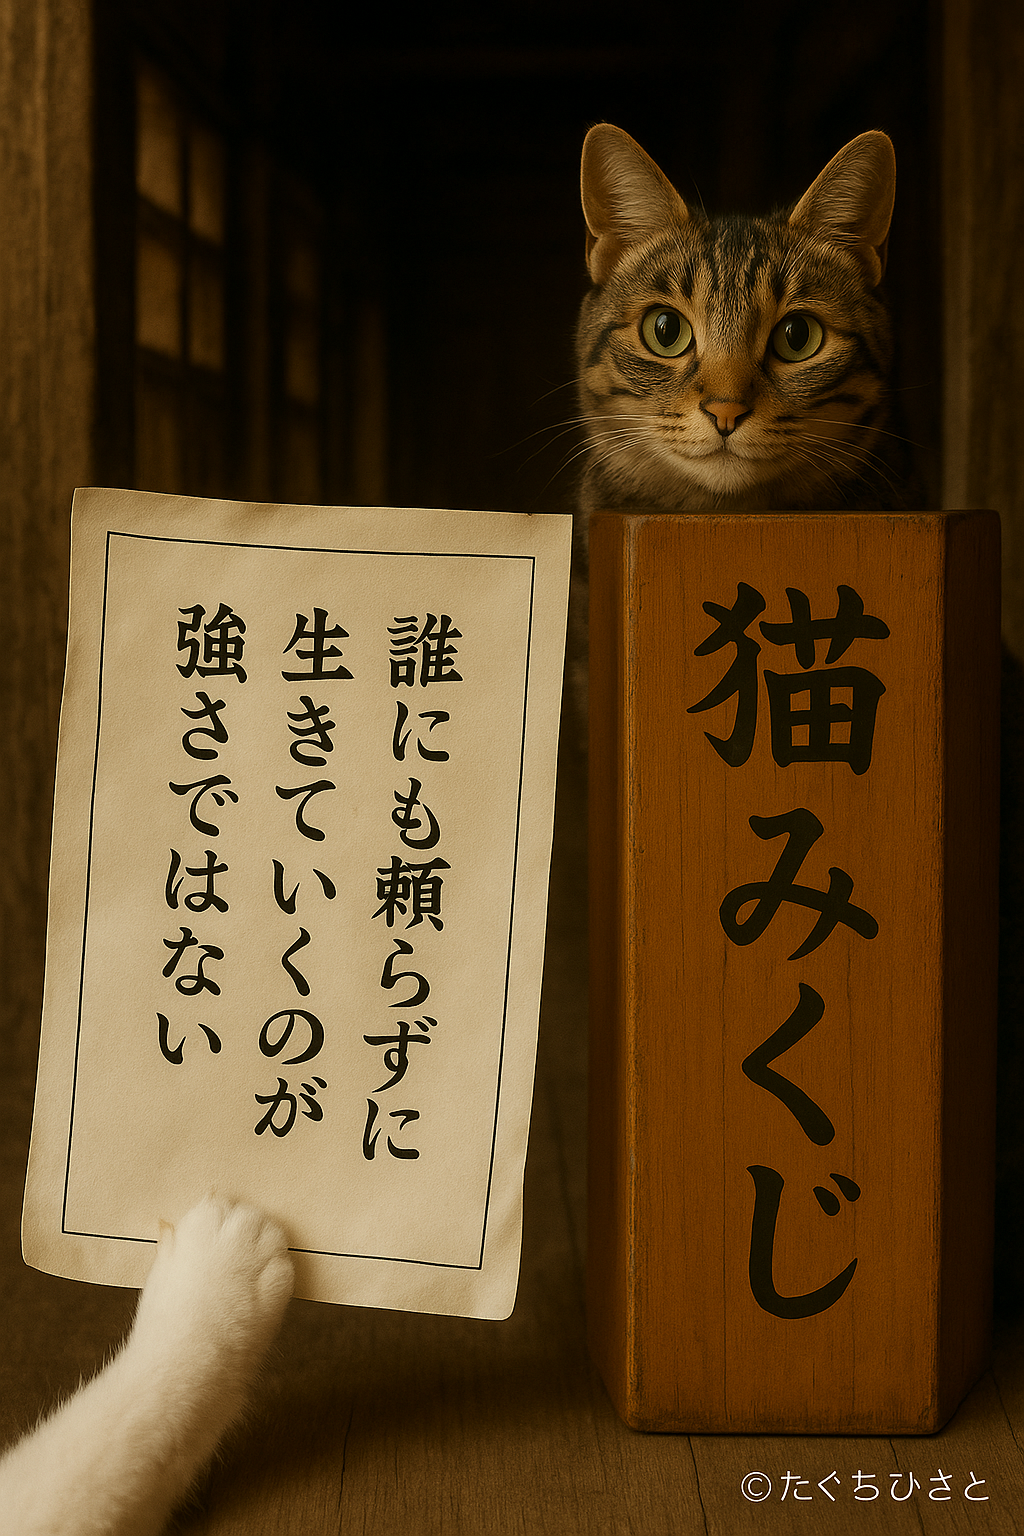 誰にも頼らずに
生きていくのが
強さではない
猫みくじ
©たぐちひさと